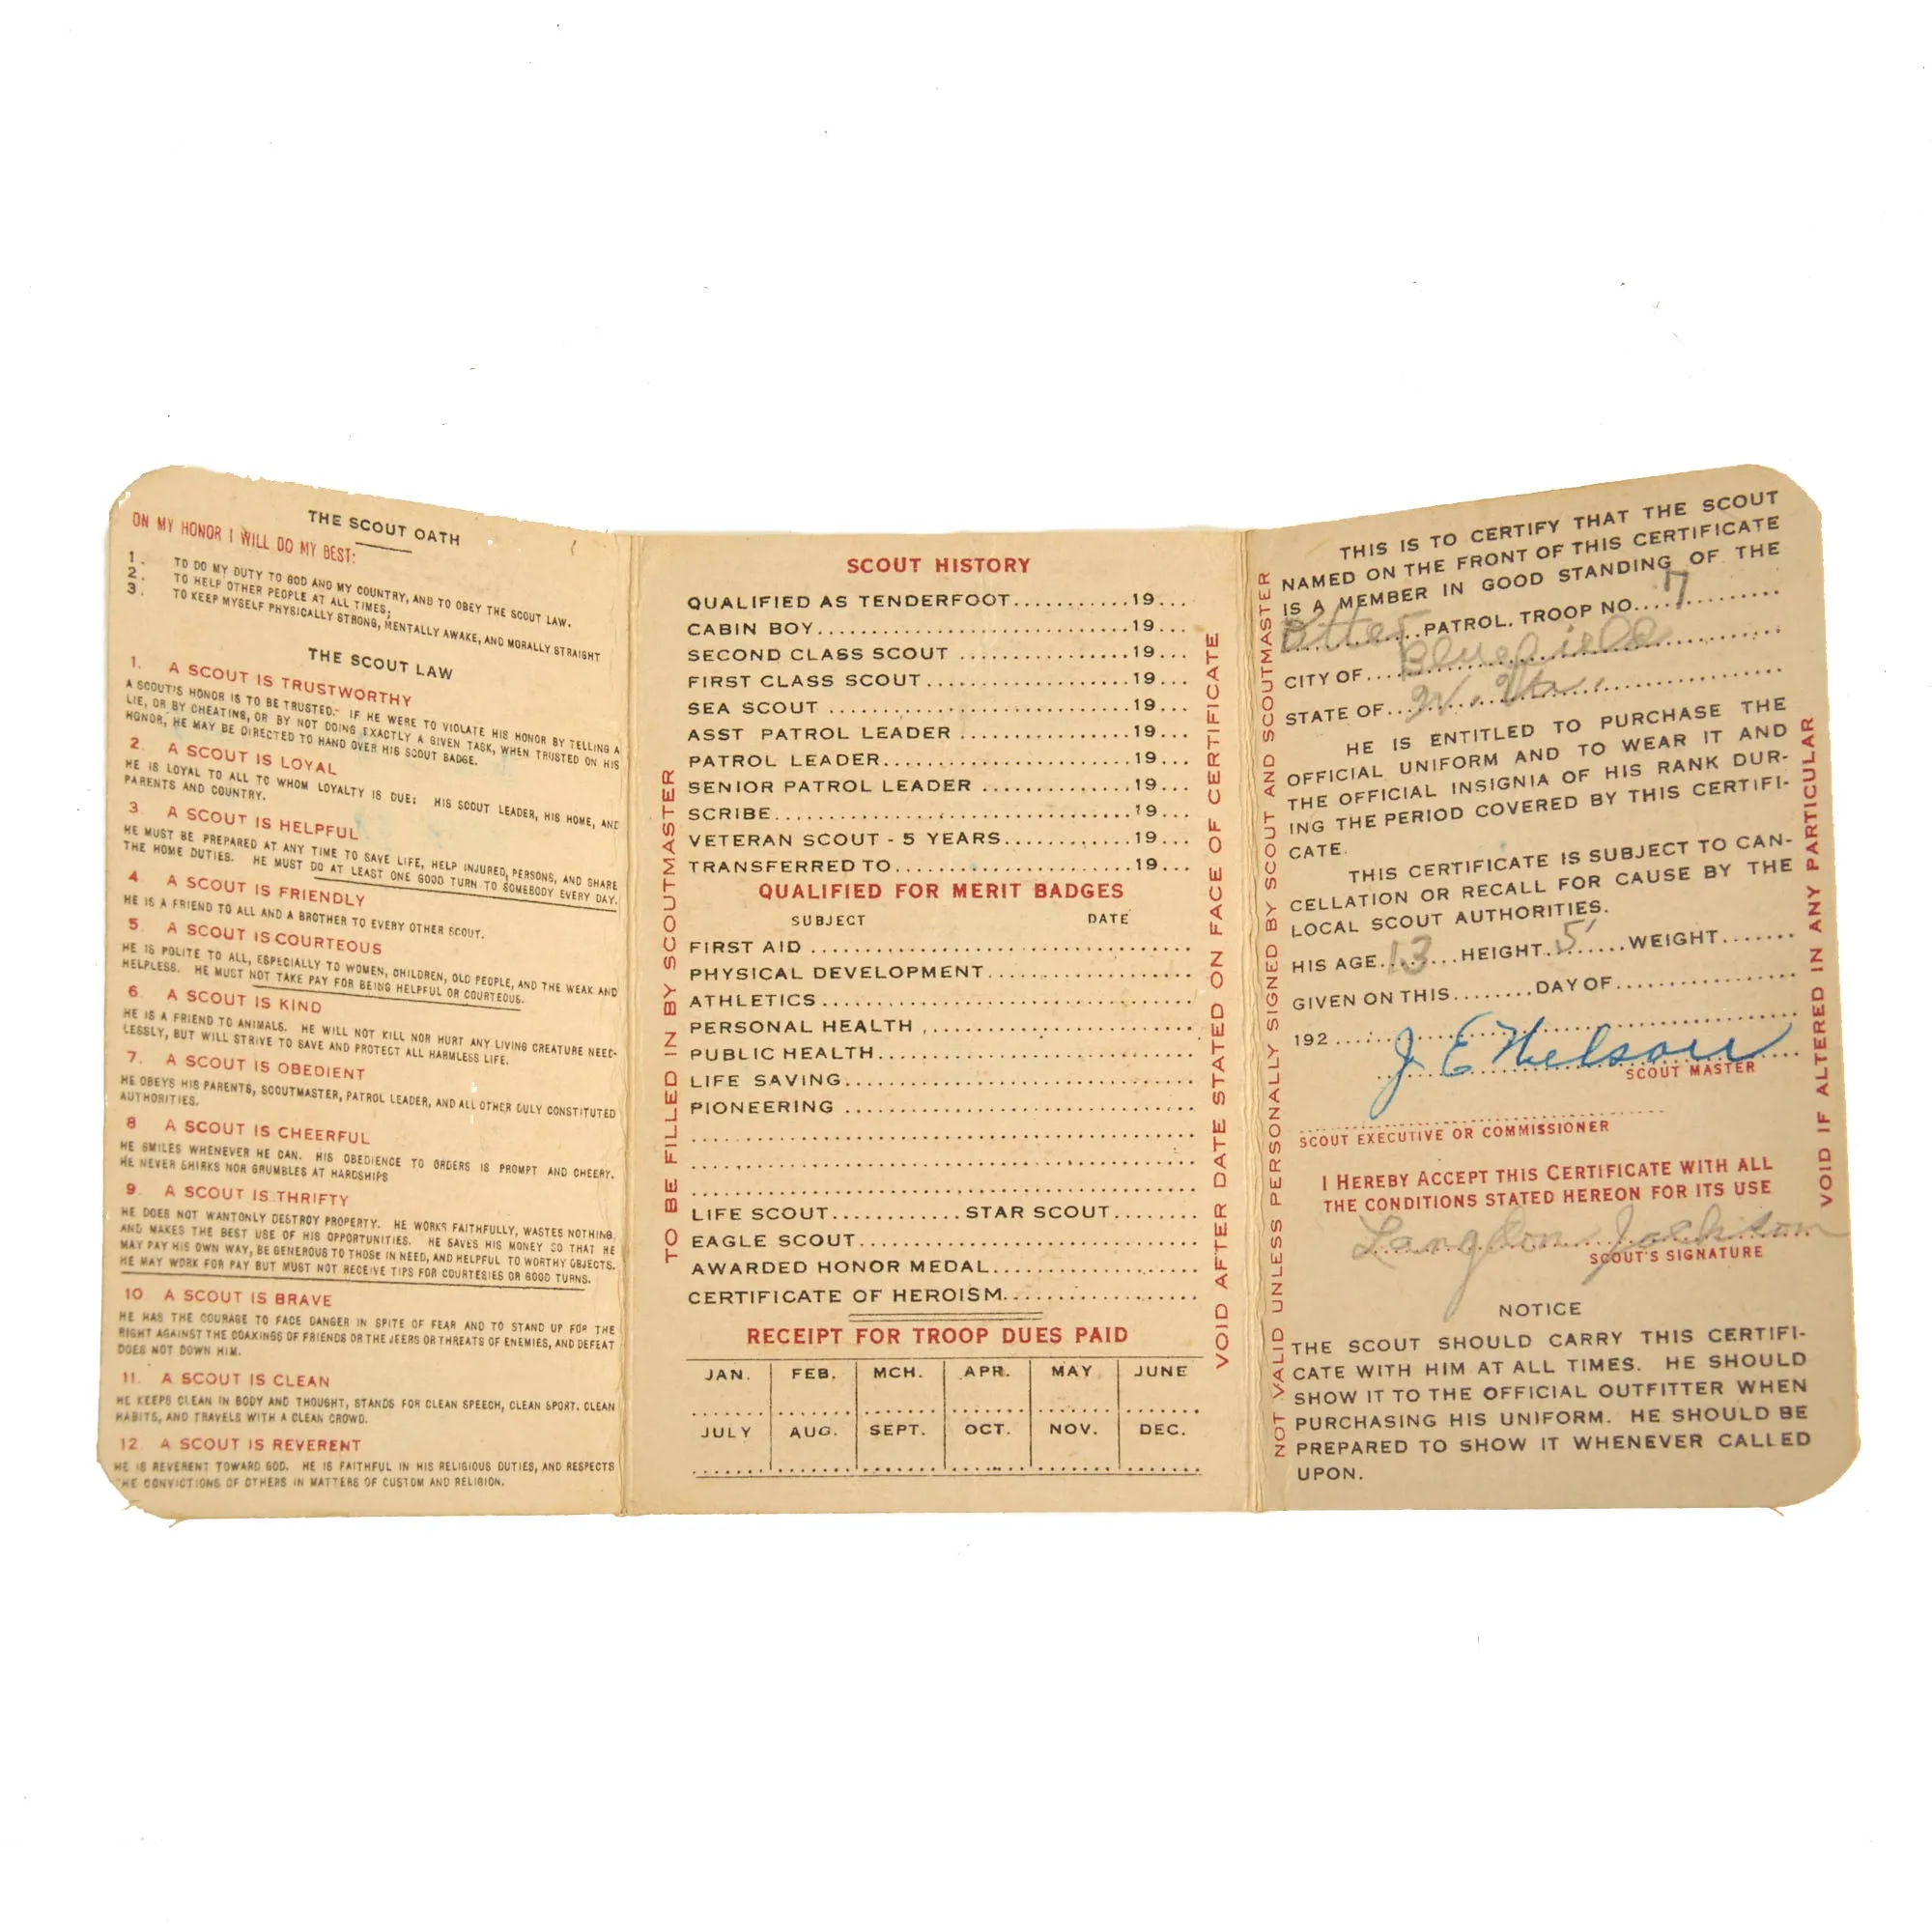 THE SCOUT OATH
ON MY HONOR I WILL DO MY BEST:
1. TO DO MY DUTY TO GOD AND MY COUNTRY, AND TO OBEY THE SCOUT LAW.
2. TO HELP OTHER PEOPLE AT ALL TIMES;
3. TO KEEP MYSELF PHYSICALLY STRONG, MENTALLY AWAKE, AND MORALLY STRAIGHT
THE SCOUT LAW
1. A SCOUT IS TRUSTWORTHY
A SCOUT'S HONOR IS TO BE TRUSTED. IF HE WERE TO VIOLATE HIS HONOR BY TELLING A
LIE, OR BY CHEATING, OR BY NOT DOING EXACTLY A GIVEN TASK, WHEN TRUSTED ON HIS
HONOR, HE MAY BE DIRECTED TO HAND OVER HIS SCOUT BADGE.
2. A SCOUT IS LOYAL
HE IS LOYAL TO ALL TO WHOM LOYALTY IS DUE; HIS SCOUT LEADER, HIS HOME, AND
PARENTS AND COUNTRY.
3 A SCOUT IS HELPFUL
HE MUST BE PREPARED AT ANY TIME TO SAVE LIFE, HELP INJURED, PERSONS, AND SHARE
THE HOME DUTIES. HE MUST DO AT LEAST ONE GOOD TURN TO SOMEBODY EVERY DAY.
4 A SCOUT IS FRIENDLY
HE IS A FRIEND TO ALL AND A BROTHER TO EVERY OTHER SCOUT.
5. A SCOUT IS COURTEOUS
HE IS POLITE TO ALL, ESPECIALLY TO WOMEN, CHILDREN, OLD PEOPLE, AND THE WEAK AND
HELPLESS. HE MUST NOT TAKE PAY FOR BEING HELPFUL OR COURTEOUS.
6 A SCOUT IS KIND
HE IS A FRIEND TO ANIMALS. HE WILL NOT KILL NOR HURT ANY LIVING CREATURE NEED-
LESSLY, BUT WILL STRIVE TO SAVE AND PROTECT ALL HARMLESS LIFE.
7. A SCOUT IS OBEDIENT
HE OBEYS HIS PARENTS, SCOUTMASTER, PATROL LEADER, AND ALL OTHER DULY CONSTITUTED
AUTHORITIES.
8 A SCOUT IS CHEERFUL
HE SMILES WHENEVER HE CAN. HIS OBEDIENCE TO ORDERS IS PROMPT AND CHEERY.
HE NEVER SHIRKS NOR GRUMBLES AT HARDSHIPS
9. A SCOUT IS THRIFTY
HE DOES NOT WANTONLY DESTROY PROPERTY. HE WORKS FAITHFULLY, WASTES NOTHING,
AND MAKES THE BEST USE OF HIS OPPORTUNITIES. HE SAVES HIS MONEY SO THAT HE
MAY PAY HIS OWN WAY, BE GENEROUS TO THOSE IN NEED, AND HELPFUL TO WORTHY OBJECTS.
HE MAY WORK FOR PAY BUT MUST NOT RECEIVE TIPS FOR COURTESIES OR GOOD TURNS.
10 A SCOUT IS BRAVE
HE HAS THE COURAGE TO FACE DANGER IN SPITE OF FEAR AND TO STAND UP FOR THE
RIGHT AGAINST THE COAXINGS OF FRIENDS OR THE JEERS OR THREATS OF ENEMIES, AND DEFEAT
DOES NOT DOWN HIM.
11. A SCOUT IS CLEAN
HE KEEPS CLEAN IN BODY AND THOUGHT, STANDS FOR CLEAN SPEECH, CLEAN SPORT. CLEAN
HABITS, AND TRAVELS WITH A CLEAN CROWD.
12. A SCOUT IS REVERENT
HE IS REVERENT TOWARD GOD. HE IS FAITHFUL IN HIS RELIGIOUS DUTIES, AND RESPECTS
THE CONVICTIONS OF OTHERS IN MATTERS OF CUSTOM AND RELIGION.
TO BE FILLED IN BY SCOUTMASTER
SCOUT HISTORY
QUALIFIED AS TENDERFOOT...........19...
CABIN BOY..............................19...
SECOND CLASS SCOUT ................19...
FIRST CLASS SCOUT...................19...
SEA SCOUT .............................19...
ASST PATROL LEADER ................19...
PATROL LEADER........................19...
SENIOR PATROL LEADER ..............19...
SCRIBE...................................19...
VETERAN SCOUT - 5 YEARS............19...
TRANSFERRED TO.......................19...
QUALIFIED FOR MERIT BADGES
SUBJECT DATE
FIRST AID .....................................
PHYSICAL DEVELOPMENT....................
ATHLETICS....................................
PERSONAL HEALTH ..........................
PUBLIC HEALTH...............................
LIFE SAVING..................................
PIONEERING ..................................
LIFE SCOUT............STAR SCOUT........
EAGLE SCOUT.................................
AWARDED HONOR MEDAL....................
CERTIFICATE OF HEROISM...................
RECEIPT FOR TROOP DUES PAID
JAN. FEB. MCH. APR. MAY JUNE
JULY AUG. SEPT. OCT. NOV. DEC.
VOID AFTER DATE STATED ON FACE OF CERTIFICATE
NOT VALID UNLESS PERSONALLY SIGNED BY SCOUT AND SCOUTMASTER
THIS IS TO CERTIFY THAT THE SCOUT
NAMED ON THE FRONT OF THIS CERTIFICATE
IS A MEMBER IN GOOD STANDING OF THE
PATROL. TROOP NO....7
CITY OF....Bluefield
STATE OF...W. Va.
HE IS ENTITLED TO PURCHASE THE
OFFICIAL UNIFORM AND TO WEAR IT AND
THE OFFICIAL INSIGNIA OF HIS RANK DUR-
ING THE PERIOD COVERED BY THIS CERTIFI-
CATE.
THIS CERTIFICATE IS SUBJECT TO CAN-
CELLATION OR RECALL FOR CAUSE BY THE
LOCAL SCOUT AUTHORITIES.
HIS AGE 13 HEIGHT 5' WEIGHT.......
GIVEN ON THIS........DAY OF.................
192
J E Nelson
SCOUT MASTER
SCOUT EXECUTIVE OR COMMISSIONER
I HEREBY ACCEPT THIS CERTIFICATE WITH ALL
THE CONDITIONS STATED HEREON FOR ITS USE
Langdon Jackson
SCOUT'S SIGNATURE
NOTICE
THE SCOUT SHOULD CARRY THIS CERTIFI-
CATE WITH HIM AT ALL TIMES. HE SHOULD
SHOW IT TO THE OFFICIAL OUTFITTER WHEN
PURCHASING HIS UNIFORM. HE SHOULD BE
PREPARED TO SHOW IT WHENEVER CALLED
UPON.
VOID IF ALTERED IN ANY PARTICULAR